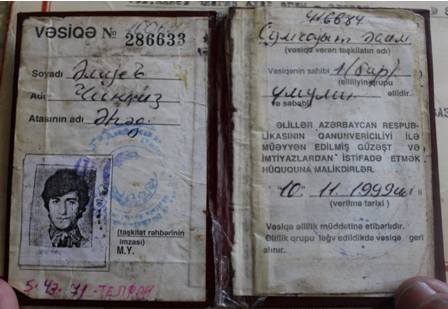 VƏSİQƏ № 286633
Soyadı Əлијев
Adı Чинҝиз
Atasının adı
(təşkilat rəhbərinin
imzası)
M.Y.
416684
Сумгајыт
(vəsiqə verən təşkilatın adı)
Vəsiqənin sahibi
(əlilliyin qrupu
və səbəbi) əlildir.
ƏLİLLƏR AZƏRBAYCAN RESPUB-
LİKASININ QANUNVERİCİLİYİ İLƏ
MÜƏYYƏN EDİLMİŞ GÜZƏŞT VƏ
İMTİYAZLARDAN İSTİFADƏ ETMƏK
HÜQUQUNA MALİKDİRLƏR.
10. 11. 1999
(verilmə tarixi)
Vəsiqə əlillik müddətinə etibarlıdır.
Əlillik qrupu ləğv edildikdə vəsiqə geri
alınır.